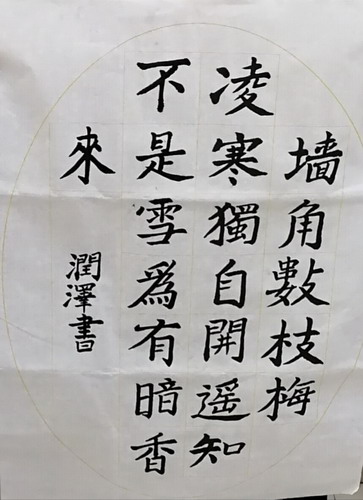 墙角數枝梅
凌寒獨自開遥知
不是雪爲有暗香
來
潤澤書